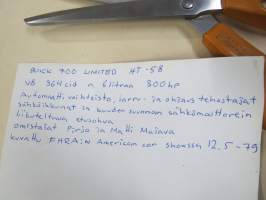 BUICK 700 LIMITED HT-58
V8 364 cid n. 6 litraa 300 hp
automaatti vaihteisto, jarru- ja ohjaus tehostajat
sähköikkunat ja kuuden suunnan sähkömoottorein
liikuteltava etusohva
omistajat Pirjo ja Matti Majava
kuvattu FHRA:n American car showssa 12.5-79